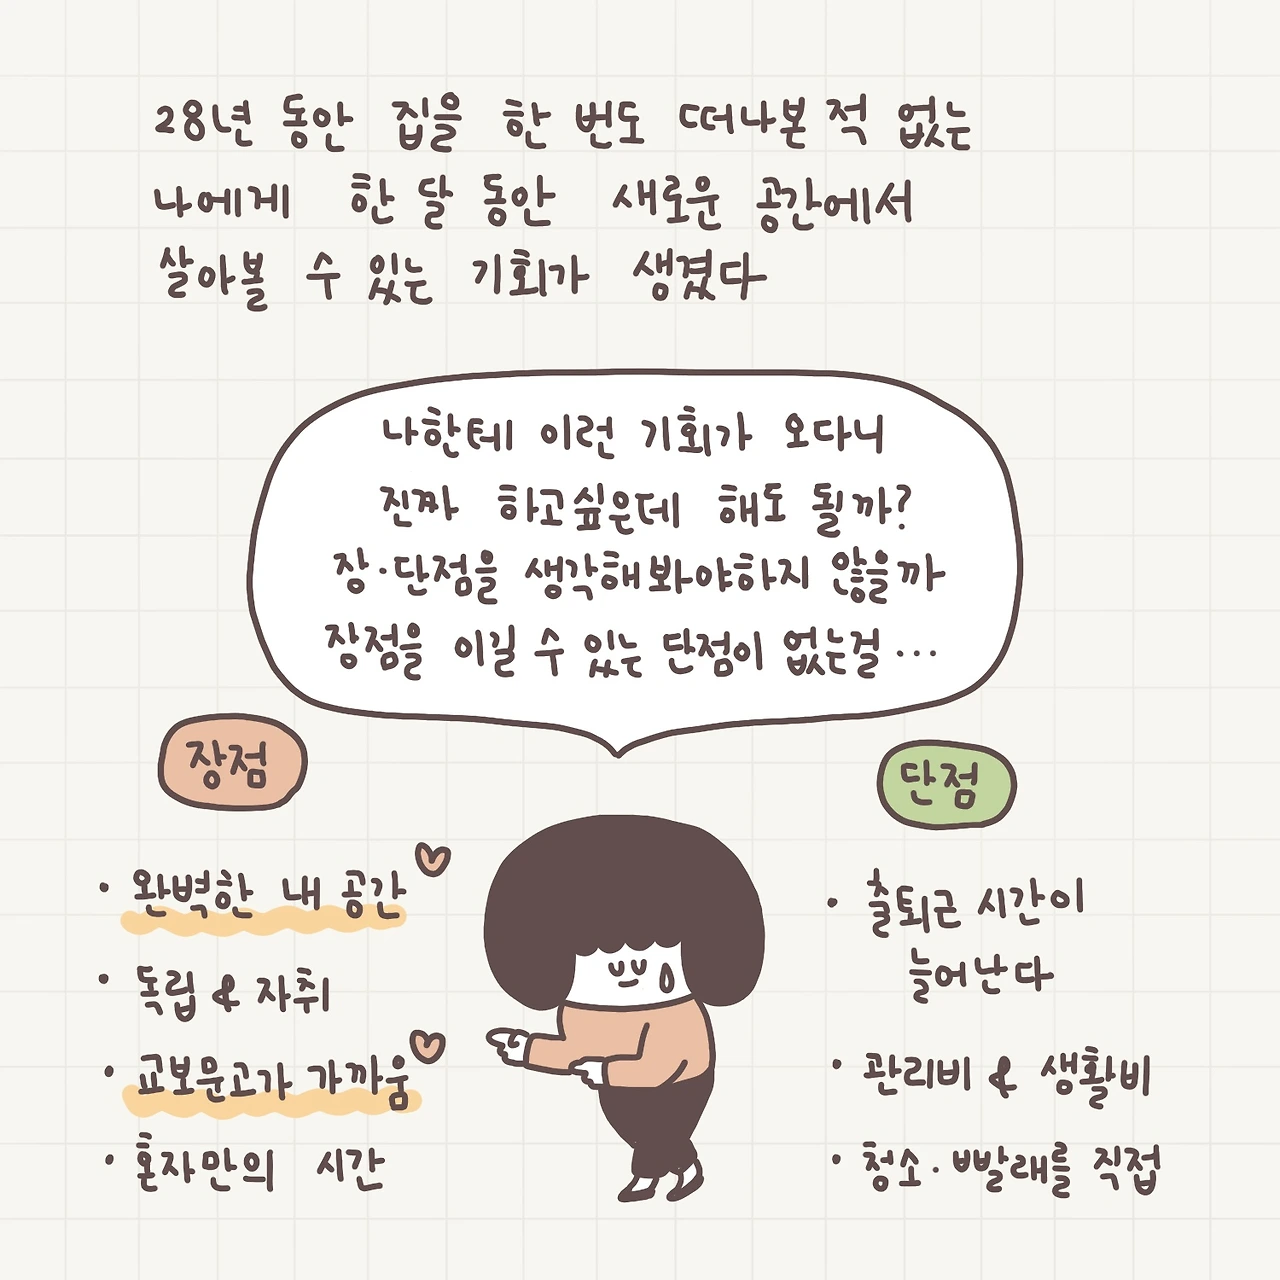 28년 동안 집을 한 번도 떠나본 적 없는
나에게 한 달 동안 새로운 공간에서
살아볼 수 있는 기회가 생겼다
나한테 이런 기회가 오다니
진짜 하고싶은데 해도 될까?
장·단점을 생각해봐야하지 않을까
장점을 이길 수 있는 단점이 없는걸...
장점
· 완벽한 내 공간
· 독립 & 자취
· 교보문고가 가까움
· 혼자만의 시간
단점
· 출퇴근 시간이
늘어난다
· 관리비 & 생활비
· 청소·빨래를 직접